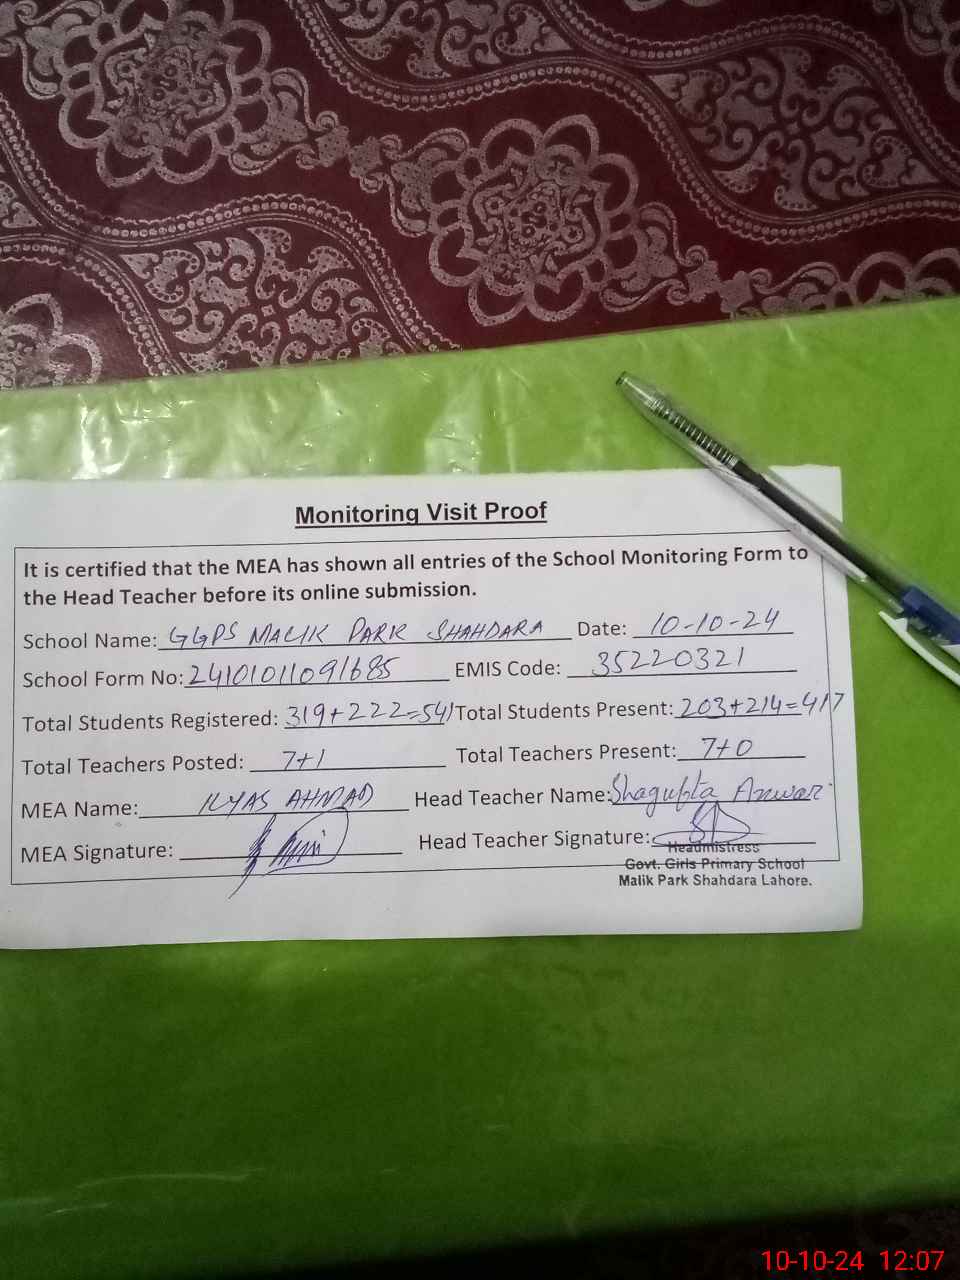 Monitoring Visit Proof
It is certified that the MEA has shown all entries of the School Monitoring Form to
the Head Teacher before its online submission.
School Name: GGPS MALIK PARK SHAHDARA Date: 10-10-24
School Form No: 24101011091685 EMIS Code: 35220321
Total Students Registered: 319+222=541 Total Students Present: 203+214=417
Total Teachers Posted: 7+1 Total Teachers Present: 7+0
MEA Name: ILYAS AHMAD Head Teacher Name: Shagufta Anwar
MEA Signature: Head Teacher Signature:
Headmistress
Govt. Girls Primary School
Malik Park Shahdara Lahore.
10-10-24 12:07